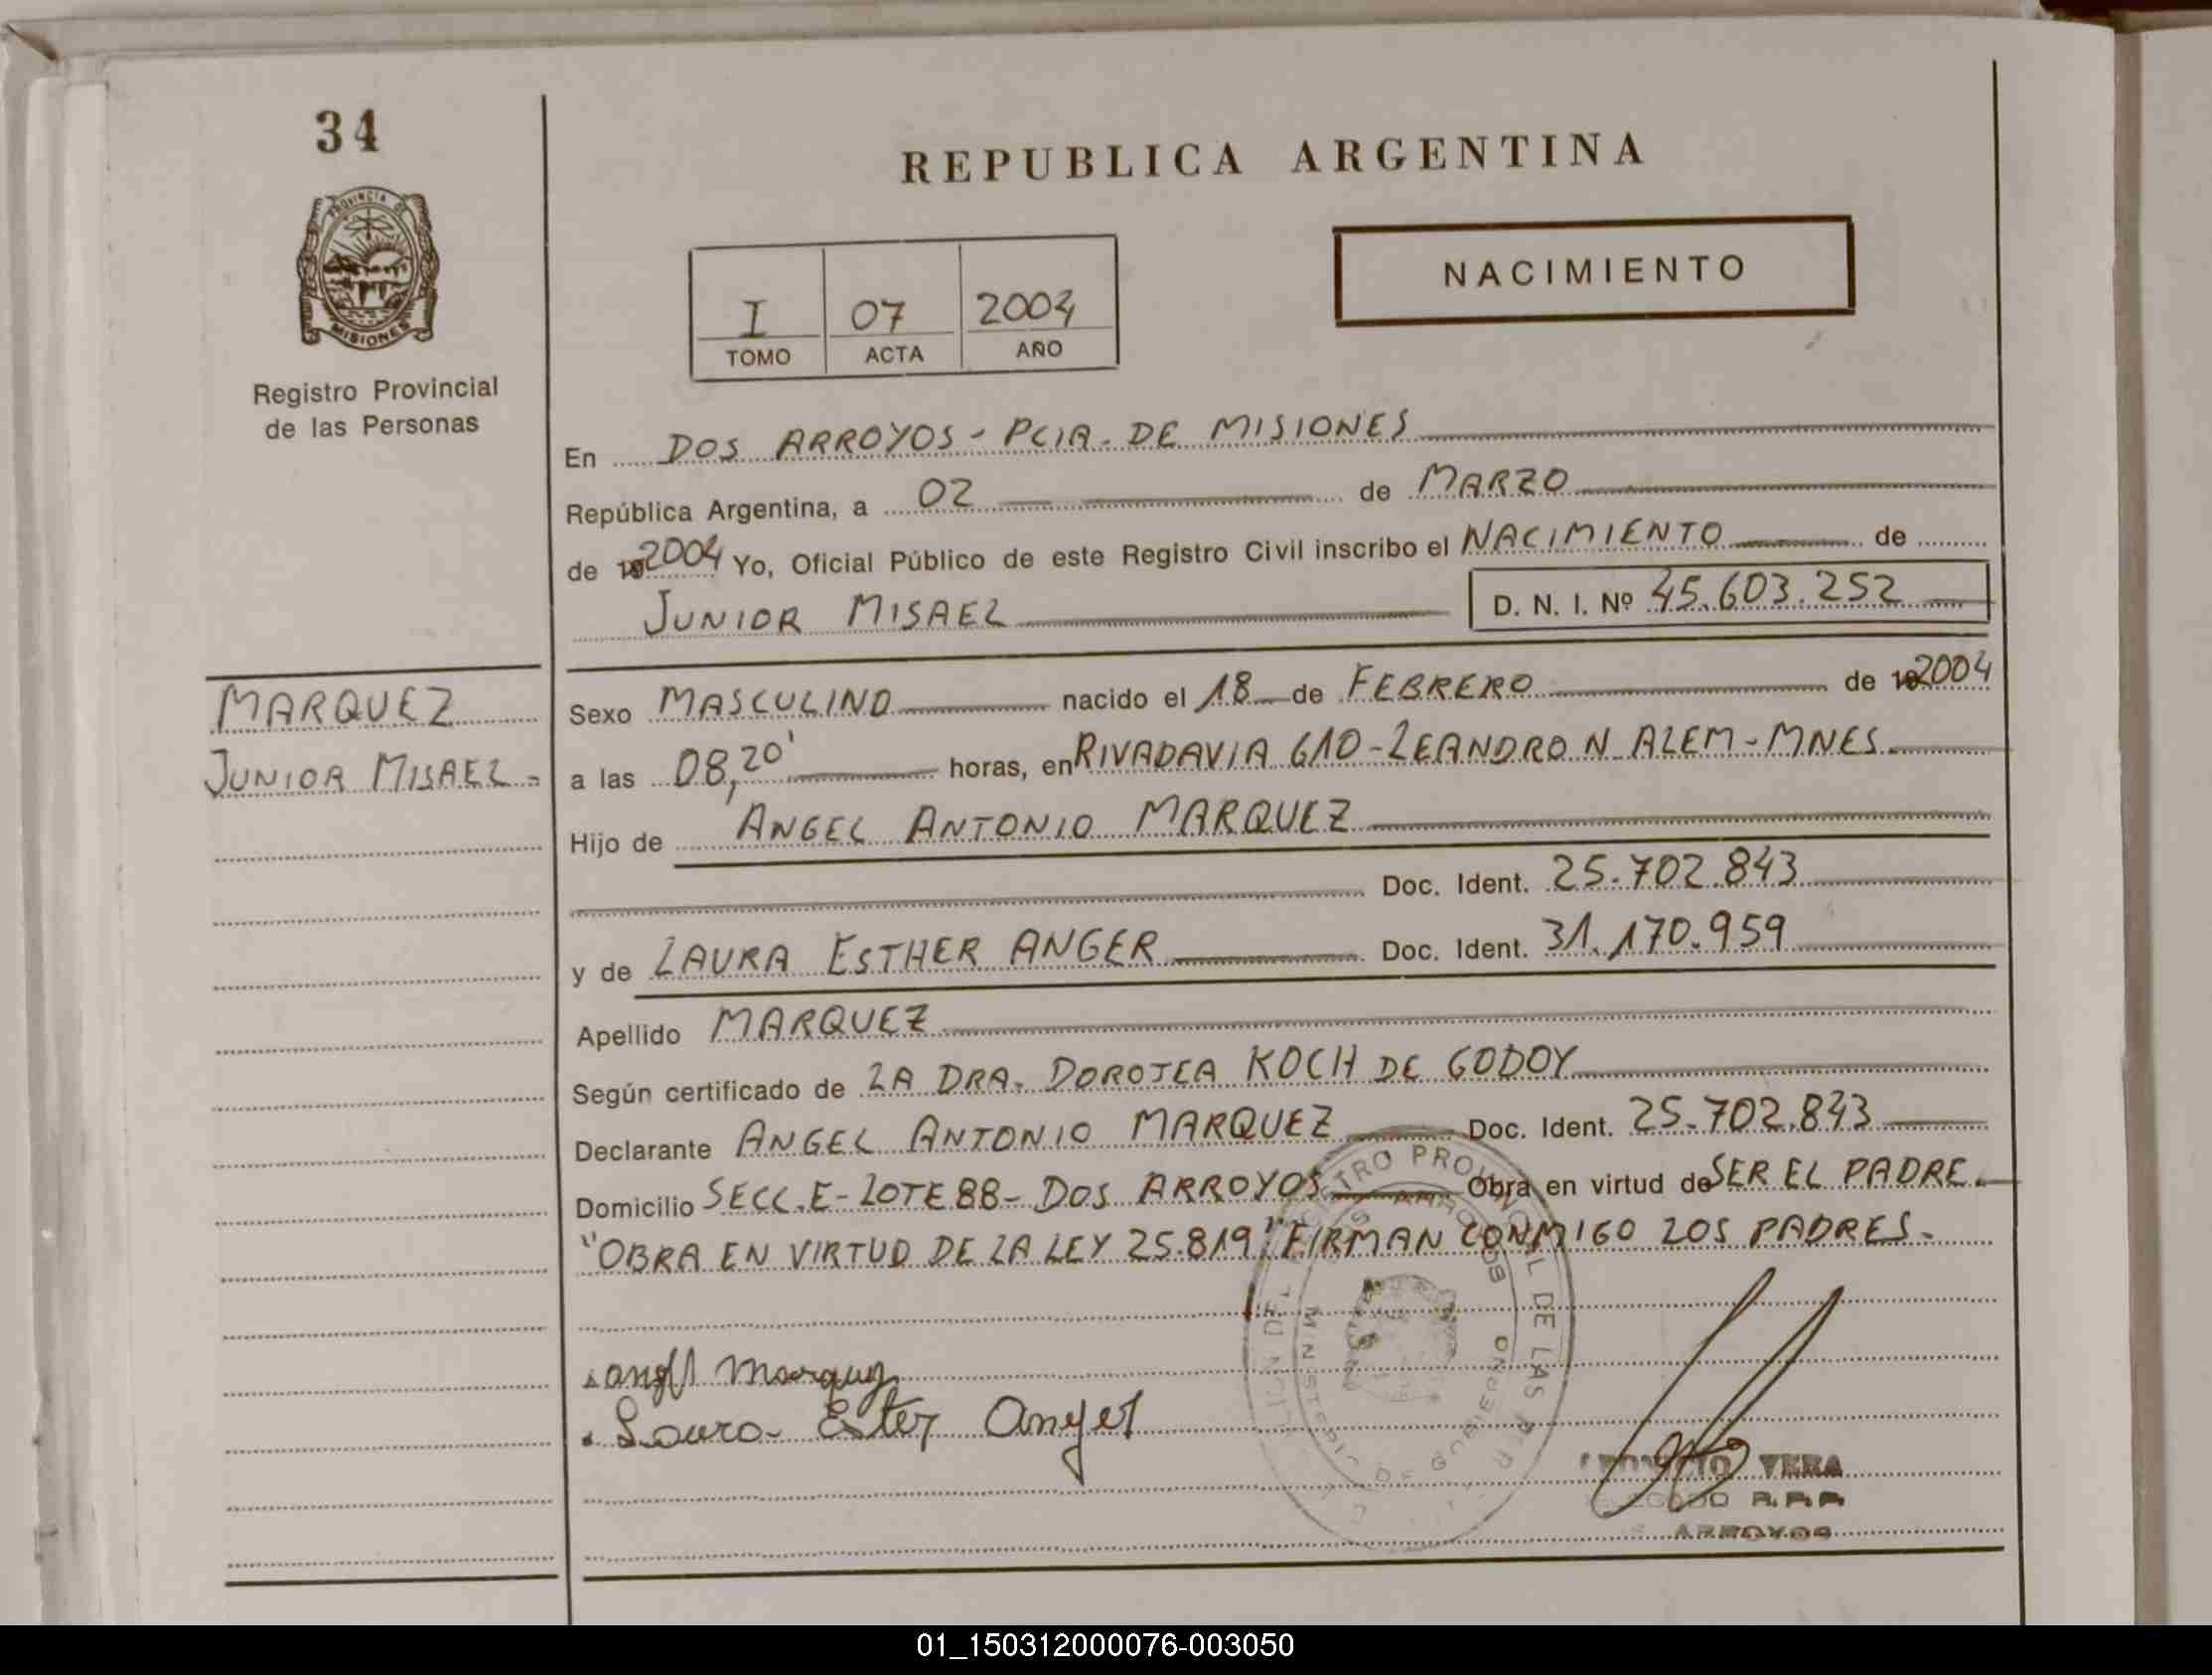 34
REPUBLICA ARGENTINA
PROVINCIA DE
MISIONES
Registro Provincial
de las Personas
I 07 2004
TOMO ACTA AÑO
NACIMIENTO
En DOS ARROYOS - PCIA. DE MISIONES
República Argentina, a 02 de MARZO
de 2004 Yo, Oficial Público de este Registro Civil inscribo el NACIMIENTO de
JUNIOR MISAEL D. N. I. Nº 45.603.252
MARQUEZ
JUNIOR MISAEL.=
Sexo MASCULINO nacido el 18 de FEBRERO de 2004
a las 08,20' horas, en RIVADAVIA 610 - LEANDRO N ALEM - MNES.
Hijo de ANGEL ANTONIO MARQUEZ
Doc. Ident. 25.702.843
y de LAURA ESTHER ANGER Doc. Ident. 31.170.959
Apellido MARQUEZ
Según certificado de LA DRA. DOROTEA KOCH DE GODOY
Declarante ANGEL ANTONIO MARQUEZ Doc. Ident. 25.702.843
Domicilio SECC.E - LOTE 88 - DOS ARROYOS Obra en virtud de SER EL PADRE.
"OBRA EN VIRTUD DE LA LEY 25.819" FIRMAN CONMIGO LOS PADRES.
Laura Ester Anger
VERA
ARROYOS
01_150312000076-003050